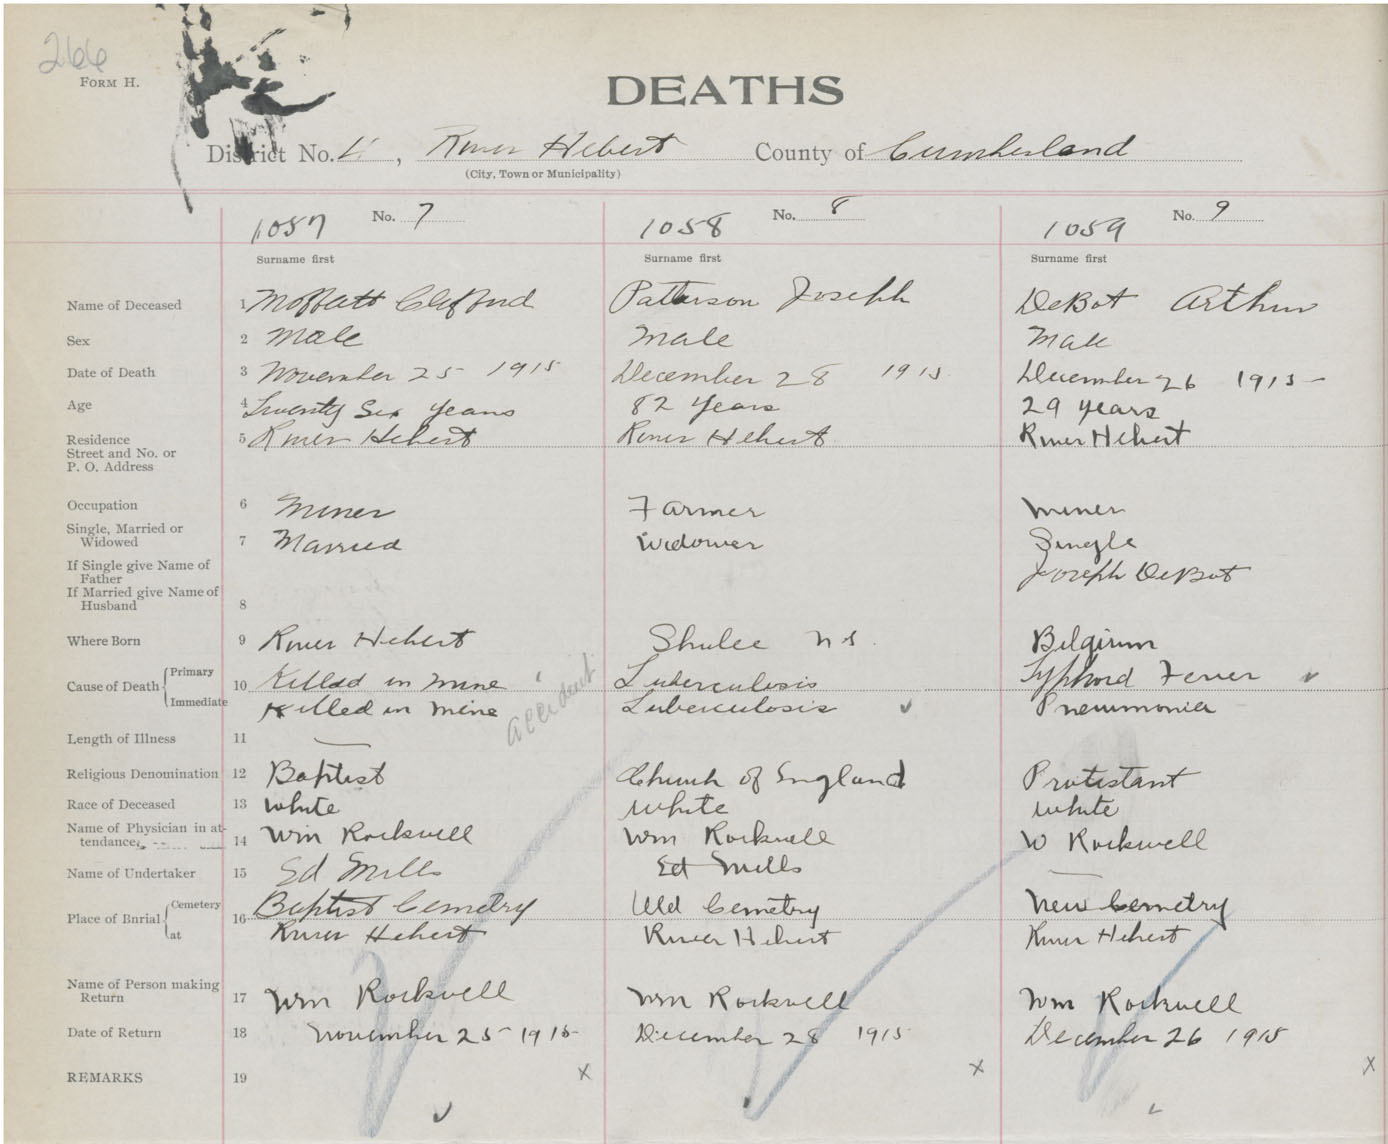 266
FORM H.
DEATHS
District No. , River Hebert County of Cumberland
(City, Town or Municipality)
1057 No. 7 1058 No. 8 1059 No. 9
Surname first Surname first Surname first
Name of Deceased 1 Moffatt Clifford Patterson Joseph DeBot Arthur
Sex 2 Male Male Male
Date of Death 3 November 25 1915 December 28 1915 December 26 1915
Age 4 Twenty Six years 82 Years 29 years
Residence
Street and No. or
P. O. Address
5 River Hebert River Hebert River Hebert
Occupation 6 Miner Farmer Miner
Single, Married or
Widowed 7 Married Widower Single
If Single give Name of
Father Joseph DeBot
If Married give Name of
Husband 8
Where Born 9 River Hebert Shulee N S. Belgium
Cause of Death { Primary 10 Killed in mine Tuberculosis Typhoid Fever
Immediate Killed in Mine accident Tuberculosis Pneumonia
Length of Illness 11
Religious Denomination 12 Baptist Church of England Protestant
Race of Deceased 13 White White White
Name of Physician in at-
tendance 14 Wm Rockwell Wm Rockwell W Rockwell
Name of Undertaker 15 Ed Mills Ed Mills
Place of Burial { Cemetery 16 Baptist Cemetry Old Cemetry New Cemetry
at River Hebert River Hebert River Hebert
Name of Person making
Return 17 Wm Rockwell Wm Rockwell Wm Rockwell
Date of Return 18 November 25 1915 December 28 1915 December 26 1915
REMARKS 19 X X X